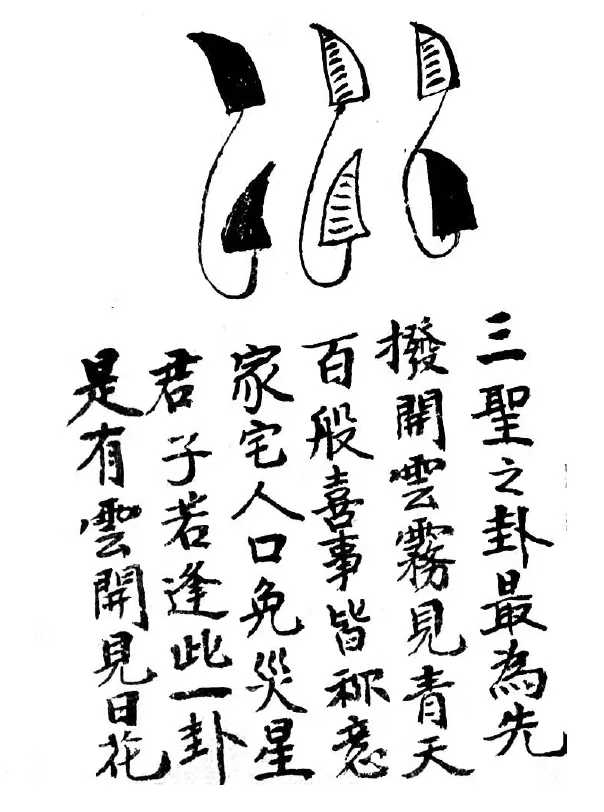 三聖之卦最為先
撥開雲霧見青天
百般喜事皆称意
家宅人口免災星
君子若逢此一卦
是有雲開見日花